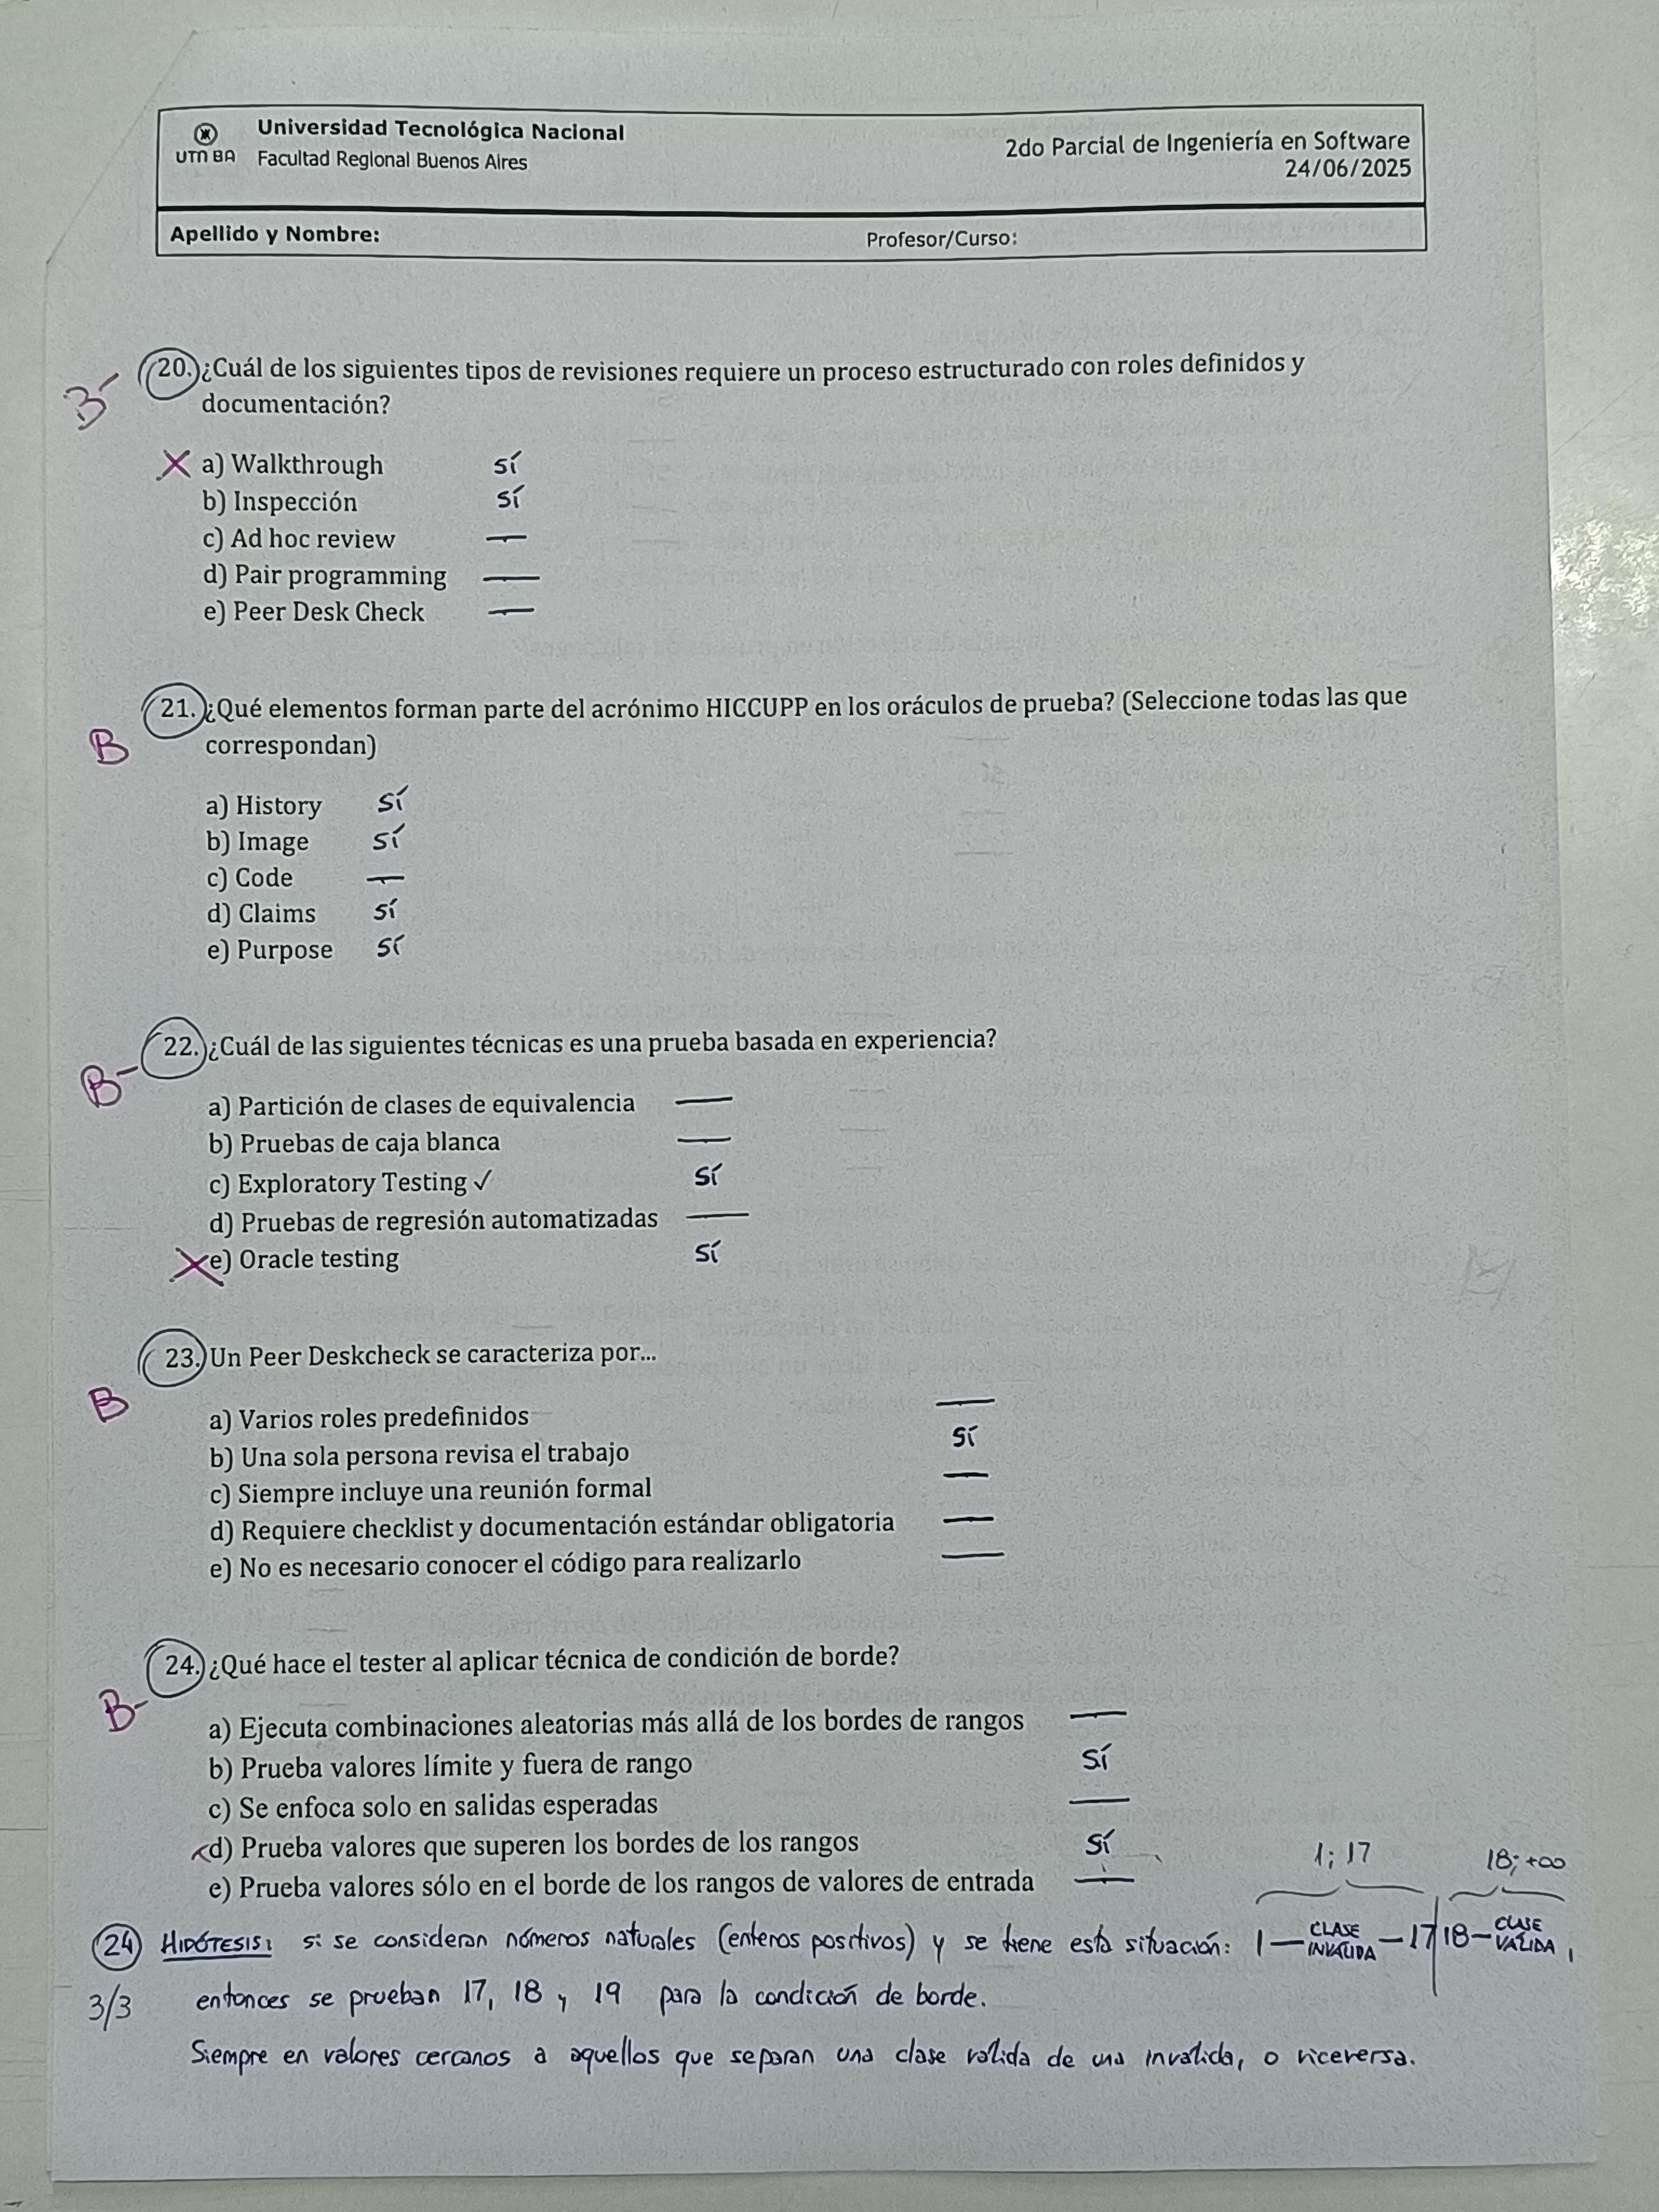 UTN BA
Universidad Tecnológica Nacional
Facultad Regional Buenos Aires
2do Parcial de Ingeniería en Software
24/06/2025
Apellido y Nombre:
Profesor/Curso:
B-
20. ¿Cuál de los siguientes tipos de revisiones requiere un proceso estructurado con roles definidos y
documentación?
X a) Walkthrough SÍ
b) Inspección SÍ
c) Ad hoc review —
d) Pair programming —
e) Peer Desk Check —
21. ¿Qué elementos forman parte del acrónimo HICCUPP en los oráculos de prueba? (Seleccione todas las que
B correspondan)
a) History SÍ
b) Image SÍ
c) Code —
d) Claims SÍ
e) Purpose SÍ
22. ¿Cuál de las siguientes técnicas es una prueba basada en experiencia?
B-
a) Partición de clases de equivalencia —
b) Pruebas de caja blanca —
c) Exploratory Testing ✓ SÍ
d) Pruebas de regresión automatizadas —
X e) Oracle testing SÍ
23. Un Peer Deskcheck se caracteriza por...
B
a) Varios roles predefinidos —
b) Una sola persona revisa el trabajo SÍ
c) Siempre incluye una reunión formal —
d) Requiere checklist y documentación estándar obligatoria —
e) No es necesario conocer el código para realizarlo —
24. ¿Qué hace el tester al aplicar técnica de condición de borde?
B-
a) Ejecuta combinaciones aleatorias más allá de los bordes de rangos —
b) Prueba valores límite y fuera de rango SÍ
c) Se enfoca solo en salidas esperadas —
d) Prueba valores que superen los bordes de los rangos SÍ
e) Prueba valores sólo en el borde de los rangos de valores de entrada —
1; 17 18; +∞
24 HIPÓTESIS: si se consideran números naturales (enteros positivos) y se tiene esta situación: 1 — CLASE INVÁLIDA — 17 | 18 — CLASE VÁLIDA,
3/3 entonces se prueban 17, 18 y 19 para la condición de borde.
Siempre en valores cercanos a aquellos que separan una clase válida de una inválida, o viceversa.